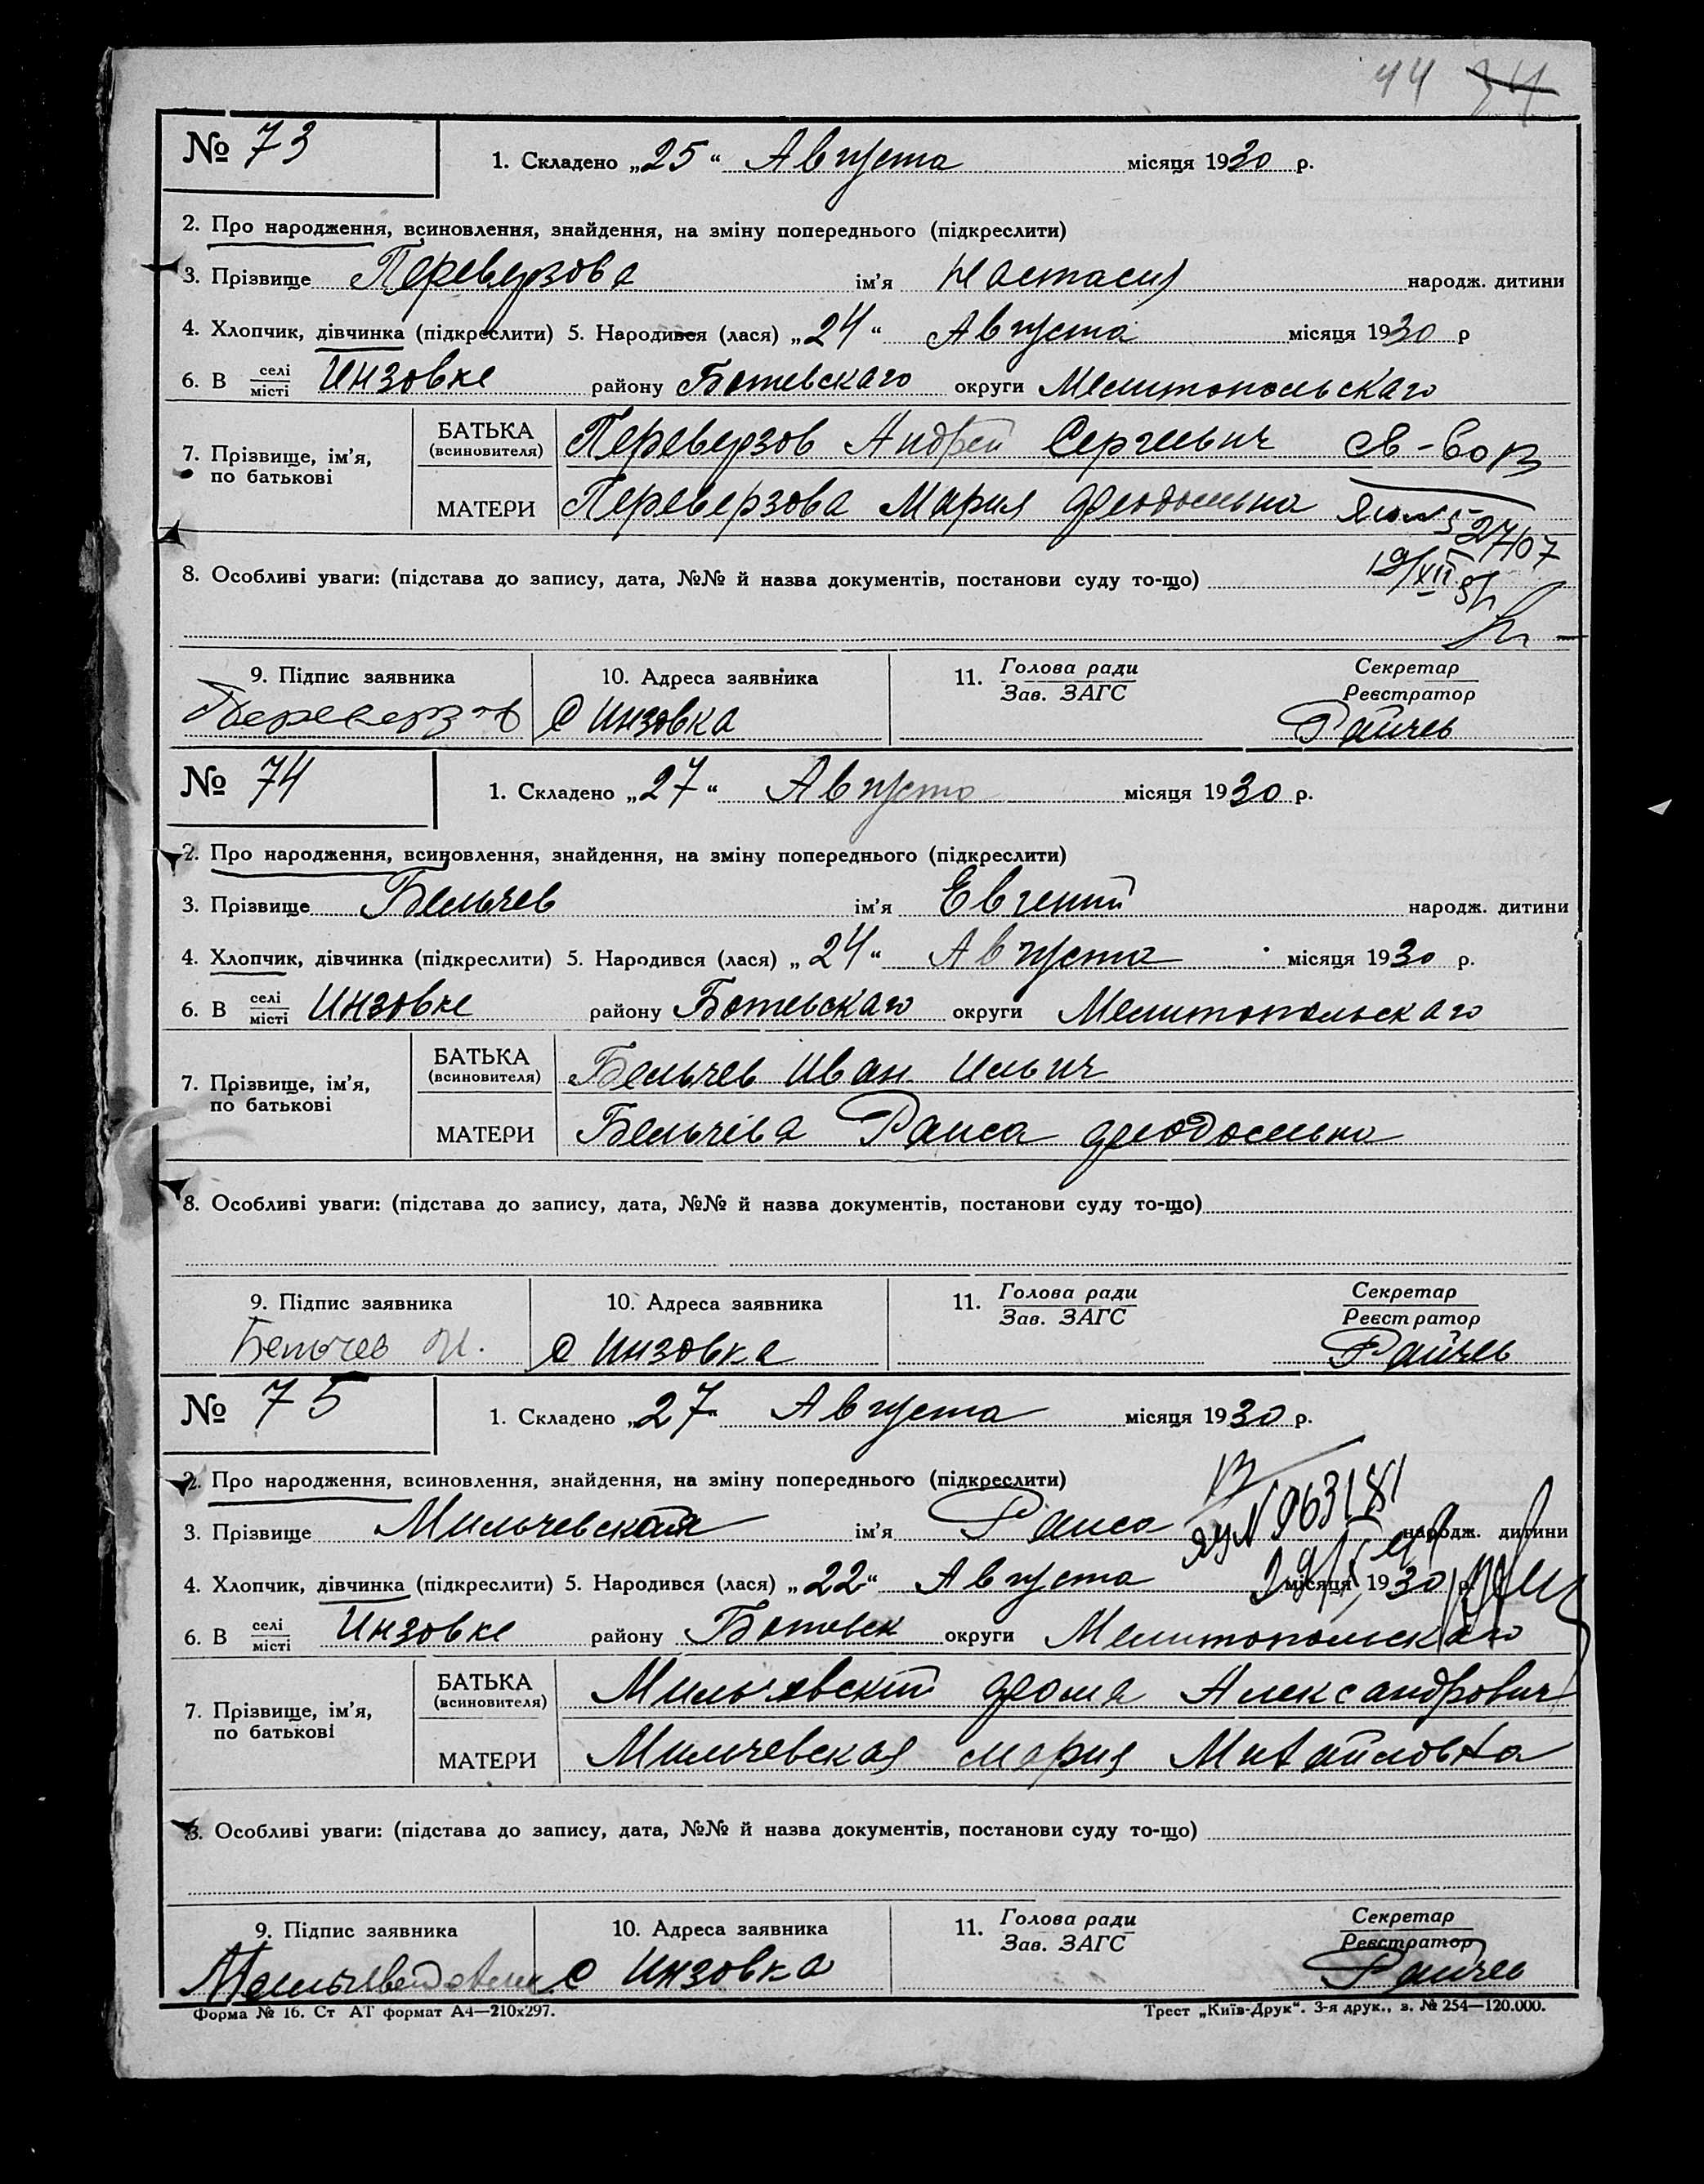 44 34
№ 73
1. Складено „25“ Августа місяця 1930 р.
2. Про народження, всиновлення, знайдення, на зміну попереднього (підкреслити)
3. Прізвище Переверзова ім’я Настасия народж. дитини
4. Хлопчик, дівчинка (підкреслити) 5. Народився (лася) „24“ Августа місяця 1930 р
6. В селі місті Инзовке району Ботевскаго округи Мелитопольскаго
7. Прізвище, ім’я, по батькові
БАТЬКА (всиновителя) Переверзов Андрей Сергеевич св-во в
МАТЕРИ Переверзова Мария Феодосьевна
19/XII 51
8. Особливі уваги: (підстава до запису, дата, №№ й назва документів, постанови суду то-що)
9. Підпис заявника 10. Адреса заявника 11. Голова ради Секретар
Зав. ЗАГС Реєстратор
Переверзов С Инзовка Райчев
№ 74
1. Складено „27“ Августа місяця 1930 р.
2. Про народження, всиновлення, знайдення, на зміну попереднього (підкреслити)
3. Прізвище Бельчев ім’я Евгений народж. дитини
4. Хлопчик, дівчинка (підкреслити) 5. Народився (лася) „24“ Августа місяця 1930 р.
6. В селі місті Инзовке району Ботевскаго округи Мелитопольскаго
7. Прізвище, ім’я, по батькові
БАТЬКА (всиновителя) Бельчев Иван Ильич
МАТЕРИ Бельчева Раиса Феодосьевна
8. Особливі уваги: (підстава до запису, дата, №№ й назва документів, постанови суду то-що)
9. Підпис заявника 10. Адреса заявника 11. Голова ради Секретар
Зав. ЗАГС Реєстратор
Бельчев И. С Инзовка Райчев
№ 75
1. Складено „27“ Августа місяця 1930 р.
2. Про народження, всиновлення, знайдення, на зміну попереднього (підкреслити)
3. Прізвище Мильчевская ім’я Раиса народж. дитини
4. Хлопчик, дівчинка (підкреслити) 5. Народився (лася) „22“ Августа місяця 1930 р.
6. В селі місті Инзовке району Ботевск округи Мелитопольскаго
7. Прізвище, ім’я, по батькові
БАТЬКА (всиновителя) Мильчевский Фома Александрович
МАТЕРИ Мильчевская Мария Михайловна
8. Особливі уваги: (підстава до запису, дата, №№ й назва документів, постанови суду то-що)
9. Підпис заявника 10. Адреса заявника 11. Голова ради Секретар
Зав. ЗАГС Реєстратор
С Инзовка Райчев
Форма № 16. Ст АТ формат А4—210х297. Трест „Київ-Друк“. 3-я друк., з. № 254—120.000.